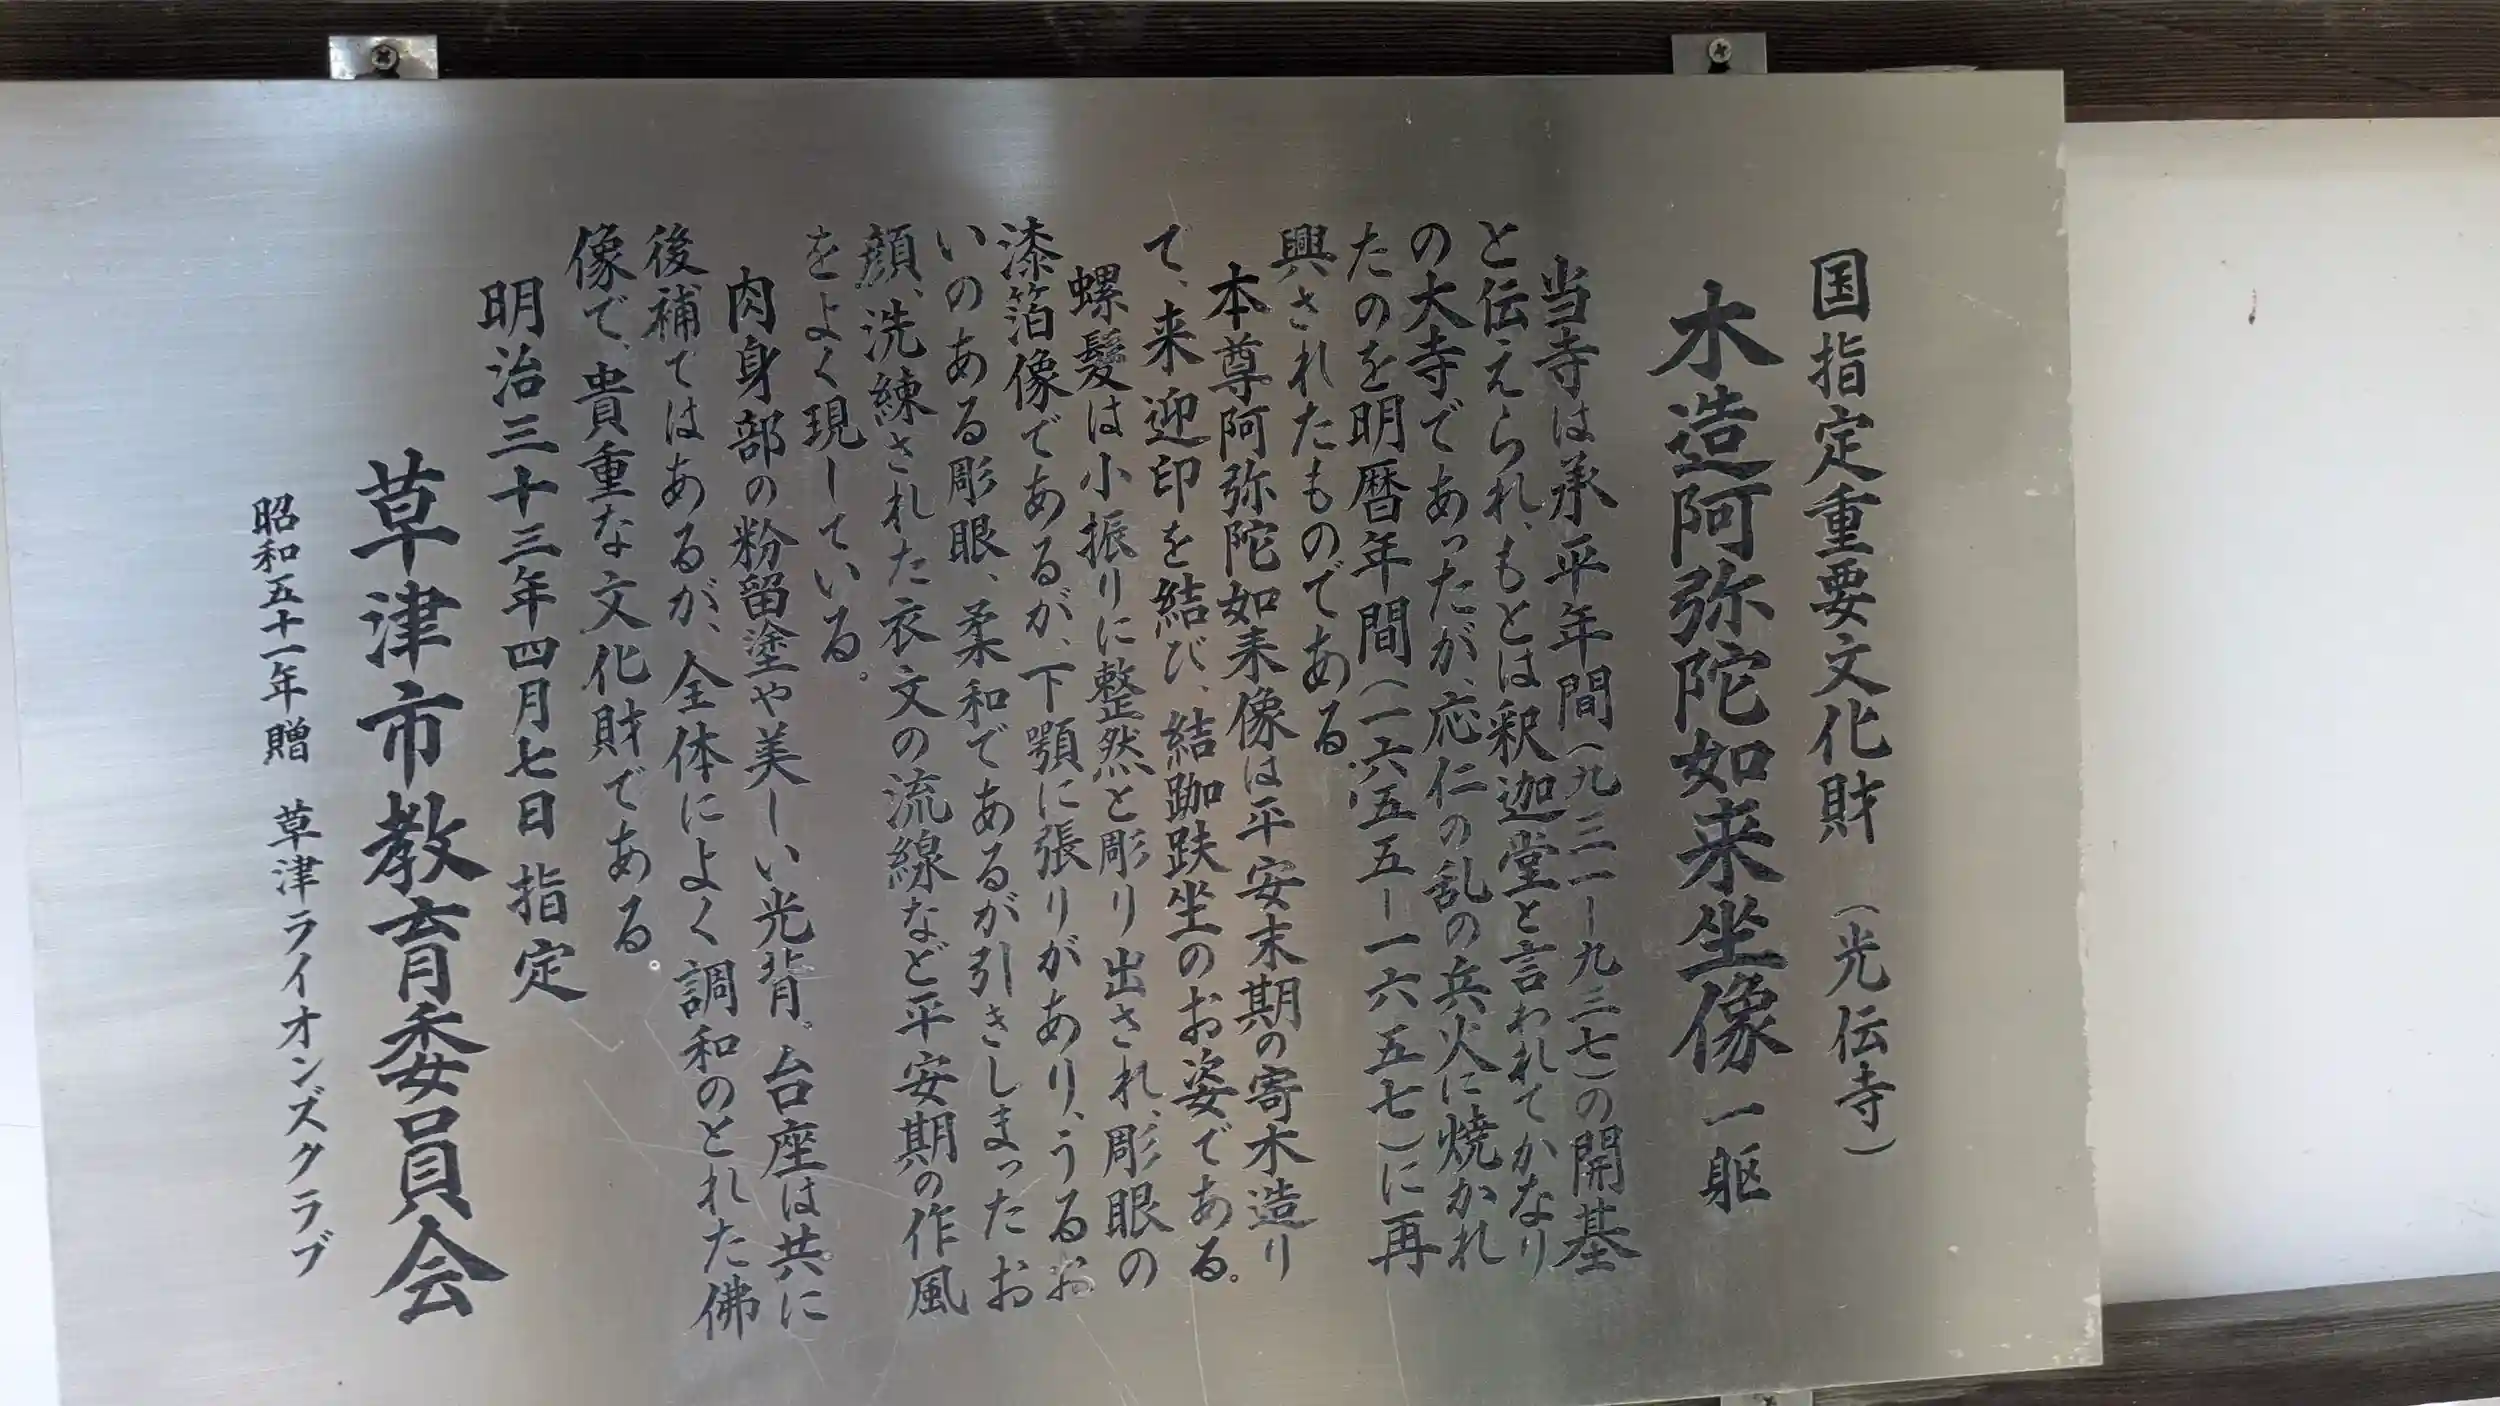 国指定重要文化財 (光伝寺)
木造阿弥陀如来坐像 一躯
当寺は承平年間(九三一ー九三七)の開基
と伝えられ、もとは釈迦堂と言われてかなり
の大寺であったが、応仁の乱の兵火に焼かれ
たのを明暦年間(一六五五ー一六五七)に再
興されたものである。
本尊阿弥陀如来像は平安末期の寄木造り
で、来迎印を結び、結跏趺坐のお姿である。
螺髪は小振りに整然と彫り出され、彫眼の
漆箔像であるが、下顎に張りがあり、うるお
いのある彫眼、柔和であるが引きしまったお
顔、洗練された衣文の流線など平安期の作風
をよく現している。
肉身部の粉留塗や美しい光背。台座は共に
後補てはあるが、全体によく調和のとれた佛
像で、貴重な文化財である。
明治三十三年四月七日 指定
草津市教育委員会
昭和五十一年贈 草津ライオンズクラブ